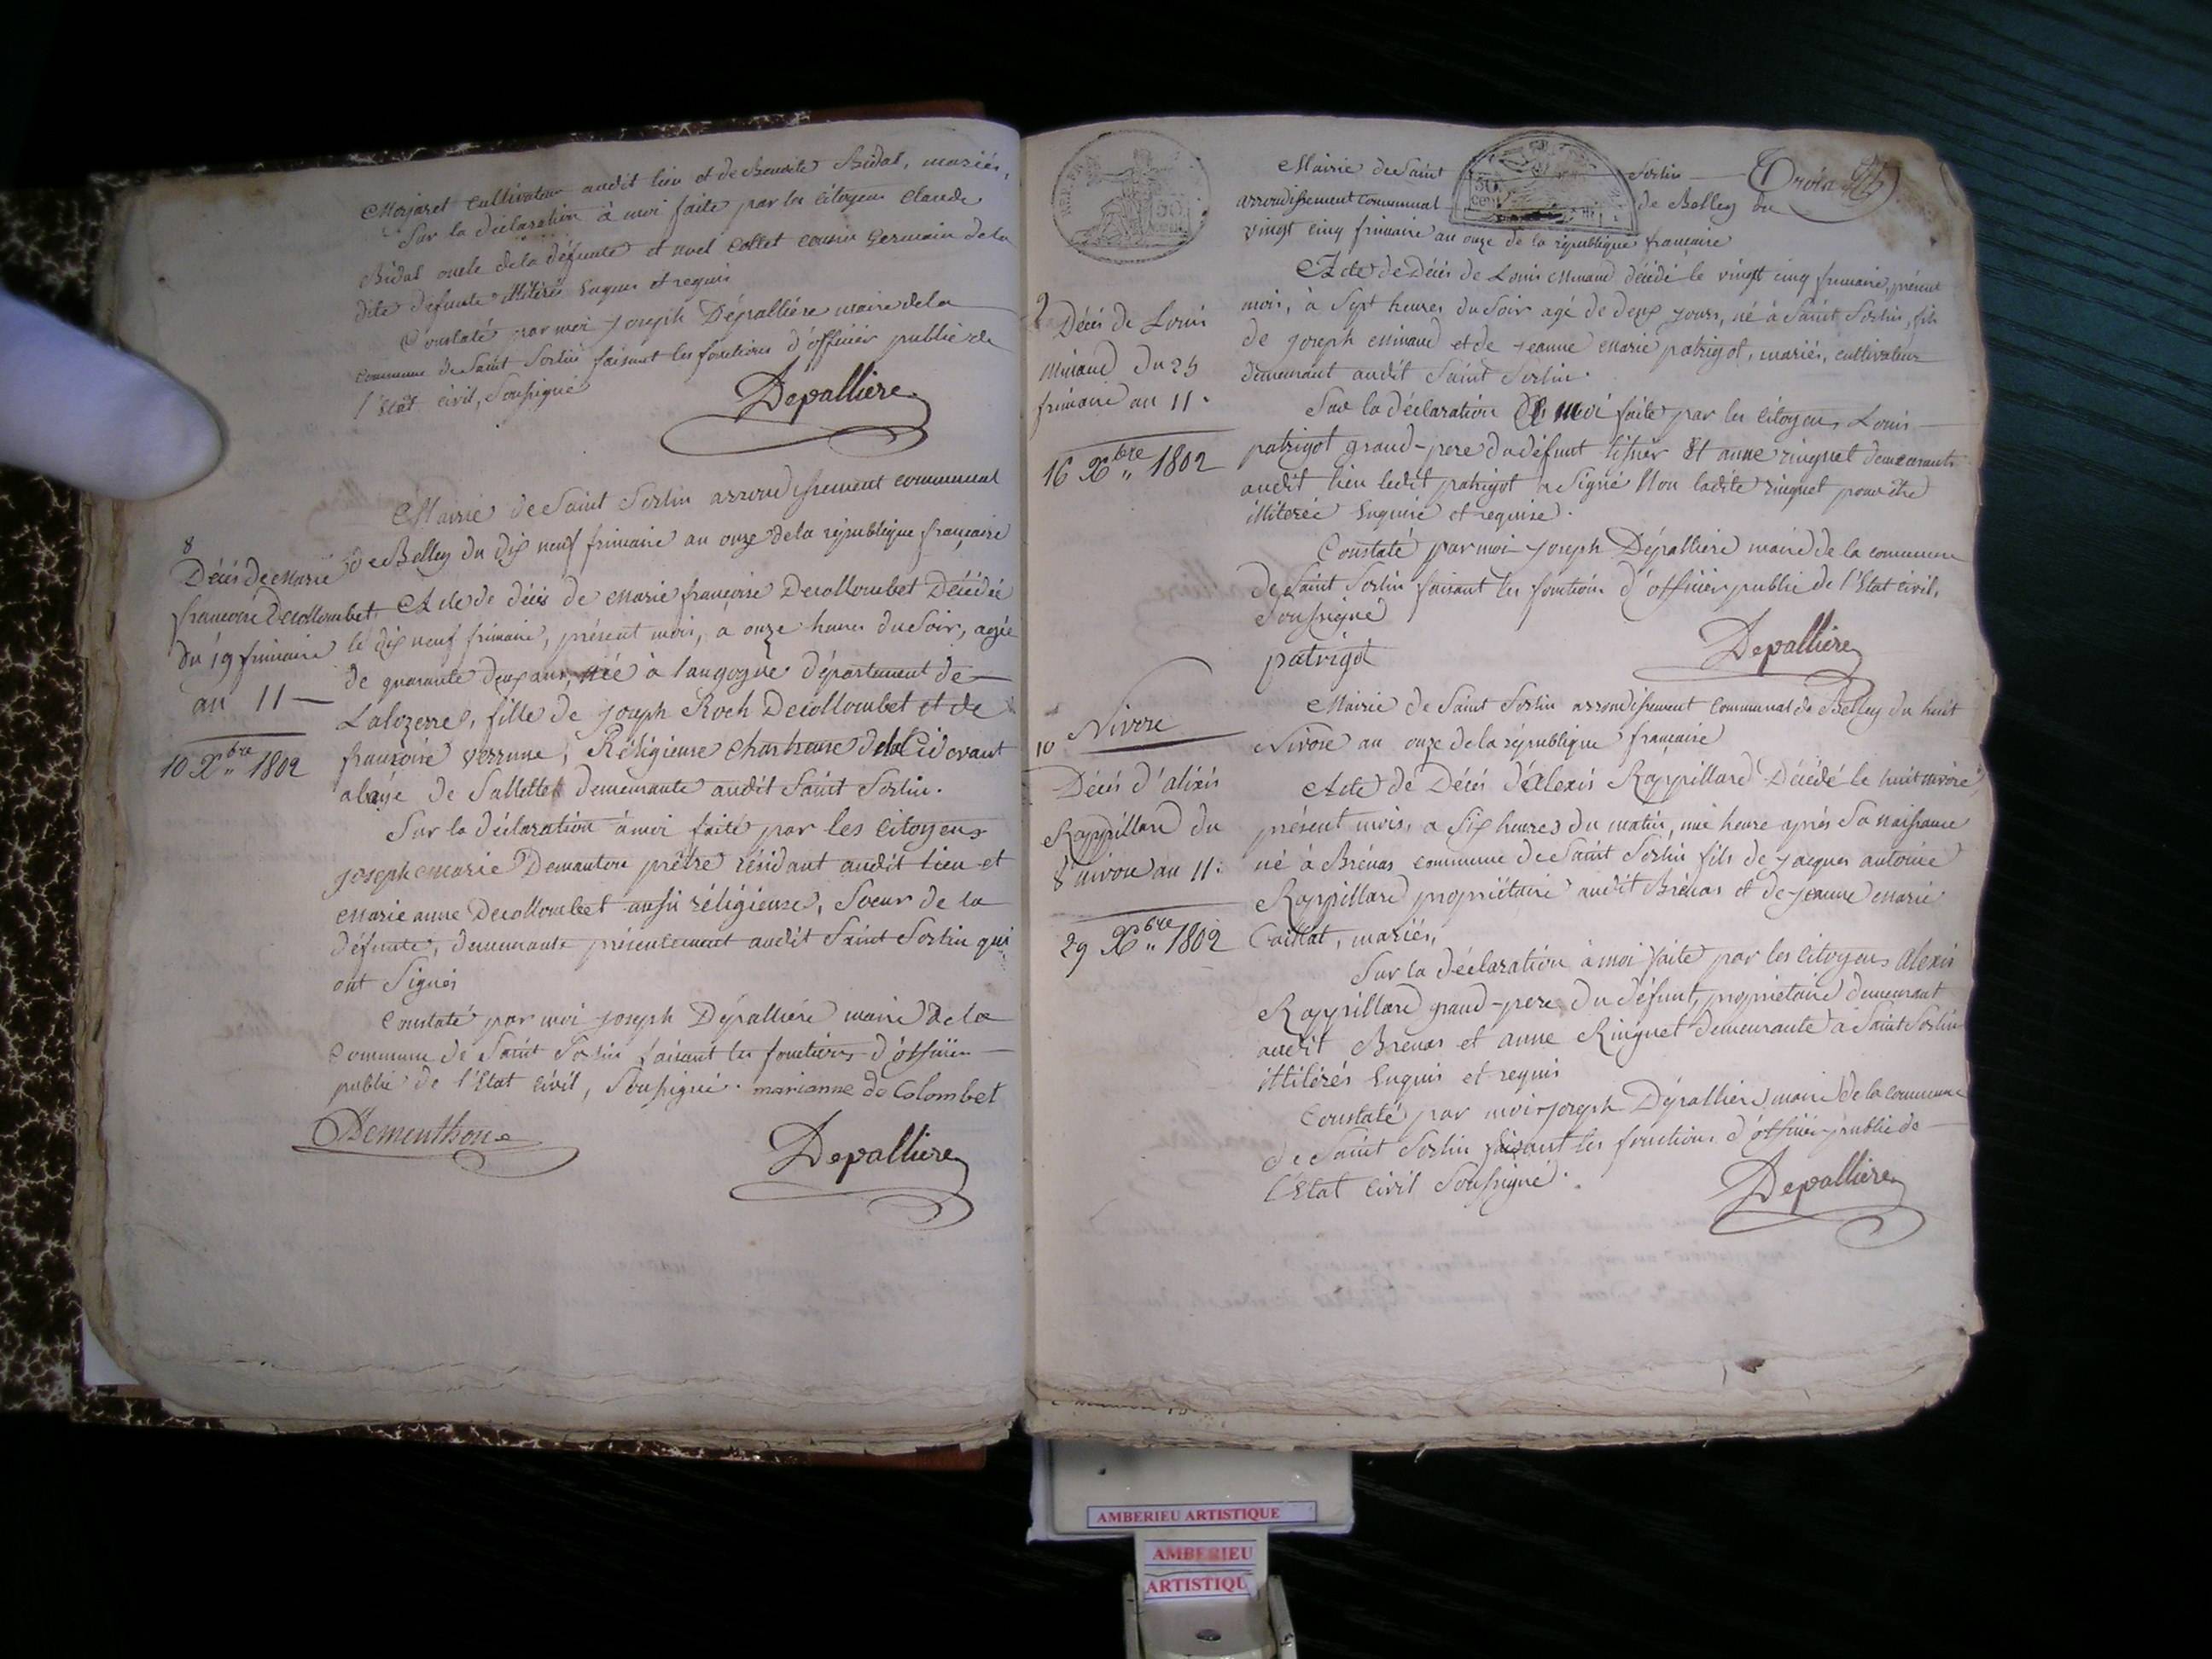 Morjaret cultivateur audit lieu et de Benoite Bidal, mariés,
Sur la déclaration à moi faite par les Citoyens Claude
Bidal oncle de la défunte et noel Collet cousin Germain de la
dite défunte illitérés Enquis et requis
Constaté par moi Joseph Dépallière maire de la
Commune de Saint Sorlin faisant les fonctions d'officier public de
l'Etat civil, Soussigné
Depalliere
Mairie de Saint Sorlin arrondissement communal
de Belley du dix neuf frimaire an onze de la république française
8
Décès de Marie
francoise Decollombet
du 19 frimaire
an 11
10 Xbre 1802
Acte de décès de Marie françoise Decollombet Décédée
le dix neuf frimaire, présent mois, a onze heures du Soir, agée
de quarante deux ans, née à langogne département de
Lalozerre, fille de Joseph Roch Decollombet et de
francoise verrune, Réligieuse chartreuse de la Cidevant
abaÿe de Sallettes demeurante audit Saint Sorlin.
Sur la déclaration à moi faite par les Citoyens
Joseph Marie Demanton prêtre résidant audit lieu et
Marie anne Decollombet aussi réligieuse, Soeur de la
défunte, demeurante présentement audit Saint Sorlin qui
ont Signés
Constaté par moi Joseph Dépallière maire de la
Commune de Saint Sorlin faisant les fonctions d'officier
public de l'Etat Civil, Soussigné. marianne de Colombet
Dementhon
Depalliere
Mairie de Saint Sorlin
arrondissement communal de Belley du
50
cent
vingt cinq frimaire an onze de la république française
9
Décès de Louis
Minaud du 25
frimaire an 11.
16 Xbre 1802
Acte de Décès de Louis Minaud décédé le vingt cinq frimaire, présent
mois, à Sept heures du Soir agé de deux jours, né à Saint Sorlin, fils
de Joseph Minaud et de Jeanne Marie patrigot, mariés, cultivateurs
demeurant audit Saint Sorlin.
Sur la déclaration à moi faite par les Citoyens Louis
patrigot grand-pere du défunt tissier Et anne ringuet demeurants
audit lieu ledit patrigot a Signé Non ladite ringuet pour être
illiterée Enquise et requise.
Constaté par moi Joseph Dépalliere maire de la commune
de Saint Sorlin faisant les fonctions d'officier public de l'Etat civil,
Soussigné
patrigot
Depalliere
Mairie de Saint Sorlin arrondissement Communal de Belley du huit
Nivose an onze de la république française
Nivose
10
Décès d'alixis
Rappillard du
8 nivose an 11.
29 Xbre 1802
Acte de Décès d'Alexis Rappillard Décédé le huit nivose
présent mois, a Six heures du matin, une heure après Sa naissance
né à Brénas commune de Saint Sorlin fils de Jacques antoine
Rappillard propriétaire audit Brénas et de Jeanne Marie
Caillat, mariés,
Sur la déclaration à moi faite par les Citoyens Alexis
Rappillard grand-pere du défunt, propriétaire demeurant
audit Brénas et anne Ringuet demeurante à Saint Sorlin
illitérés Enquis et requis
Constaté par moi Joseph Dépalliere maire de la commune
de Saint Sorlin faisant les fonctions d'officier public de
l'Etat Civil Soussigné.
Depalliere
AMBERIEU ARTISTIQUE
AMBERIEU
ARTISTIQU